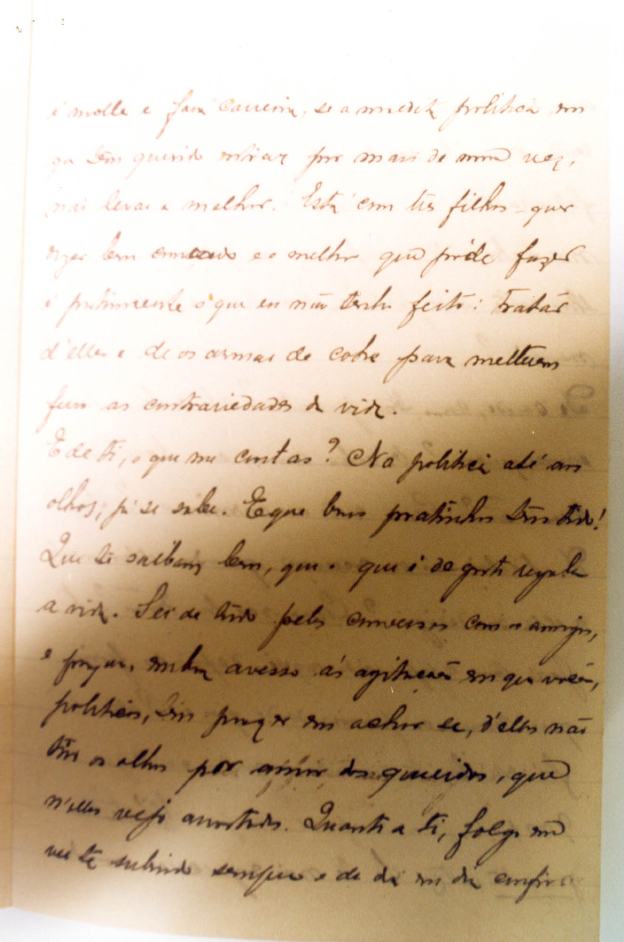 é molle e fará carreira, se a maldita politica em
que tem querido entrar por mais de uma vez,
não levar a melhor. Está com tres filhos - quer
dizer bem e o melhor que póde fazer
é justamente o que eu não tenho feito: tratar
d'elles e de os armar de cobre para melhorem
as contrariedades da vida.
E de ti, o que me contas? Na politica até aos
olhos, já se sabe. E que bons pratinhos tens tido!
Que te saibam bem, que o que é de gosto regala
a vida. Sei de tudo pelas conversas com os amigos,
e porque, embora avesso ás agitações em que vocês,
politicos, tem prazer em achar-se, d'ellas não
tiro os olhos por amor dos queridos, que
n'ellas vejo envolvidos. Quanto a ti, folgo em
ver-te subindo sempre e de dia em dia